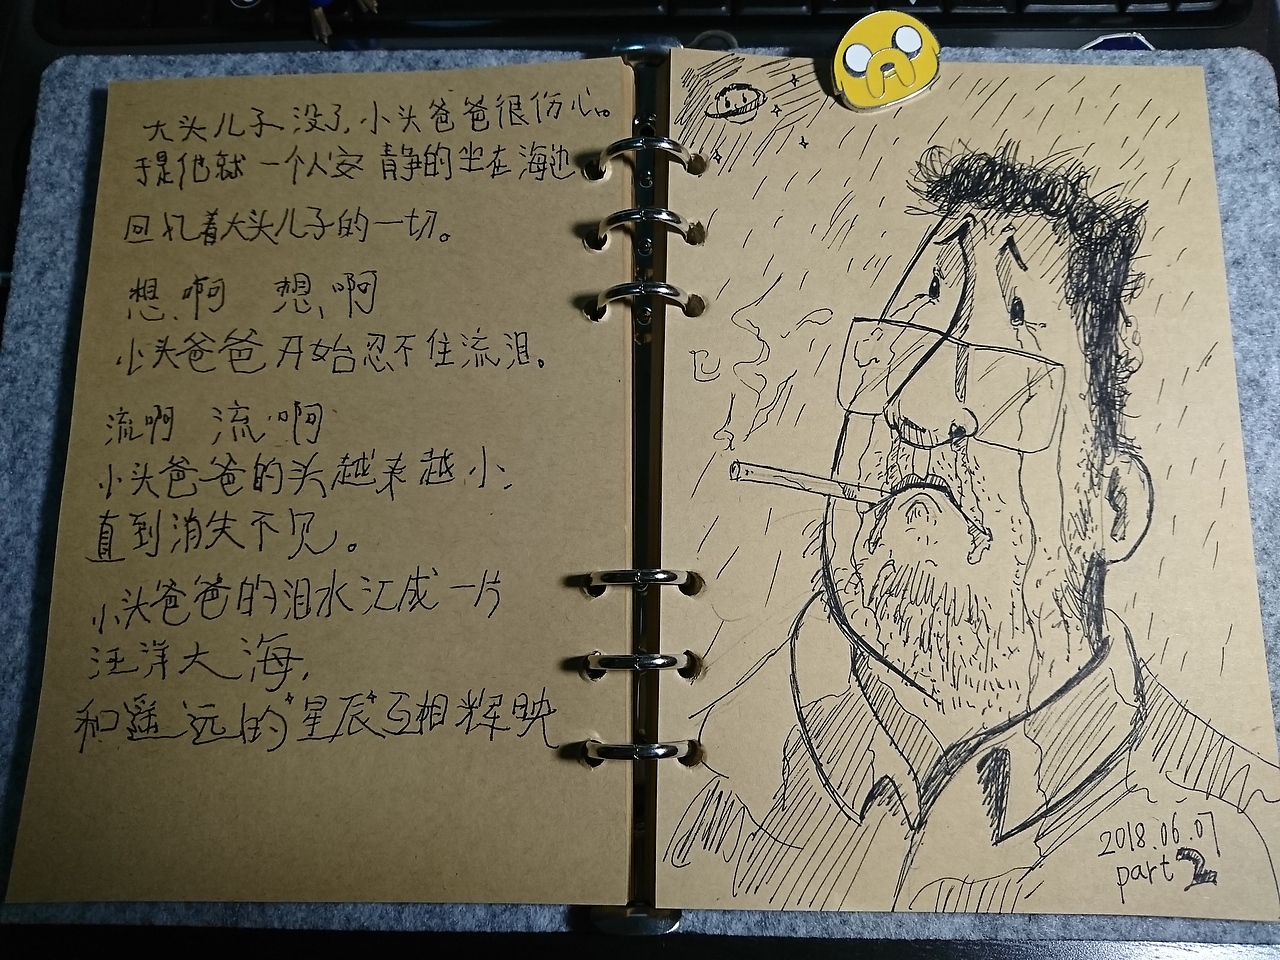 大头儿子没了,小头爸爸很伤心。
于是他就一个人安静的坐在海边
回忆着大头儿子的一切。
想啊 想啊
小头爸爸开始忍不住流泪。
流啊 流啊
小头爸爸的头越来越小,
直到消失不见。
小头爸爸的泪水汇成一片
汪洋大海,
和遥远的星辰互相辉映
2018.06.07
part 2